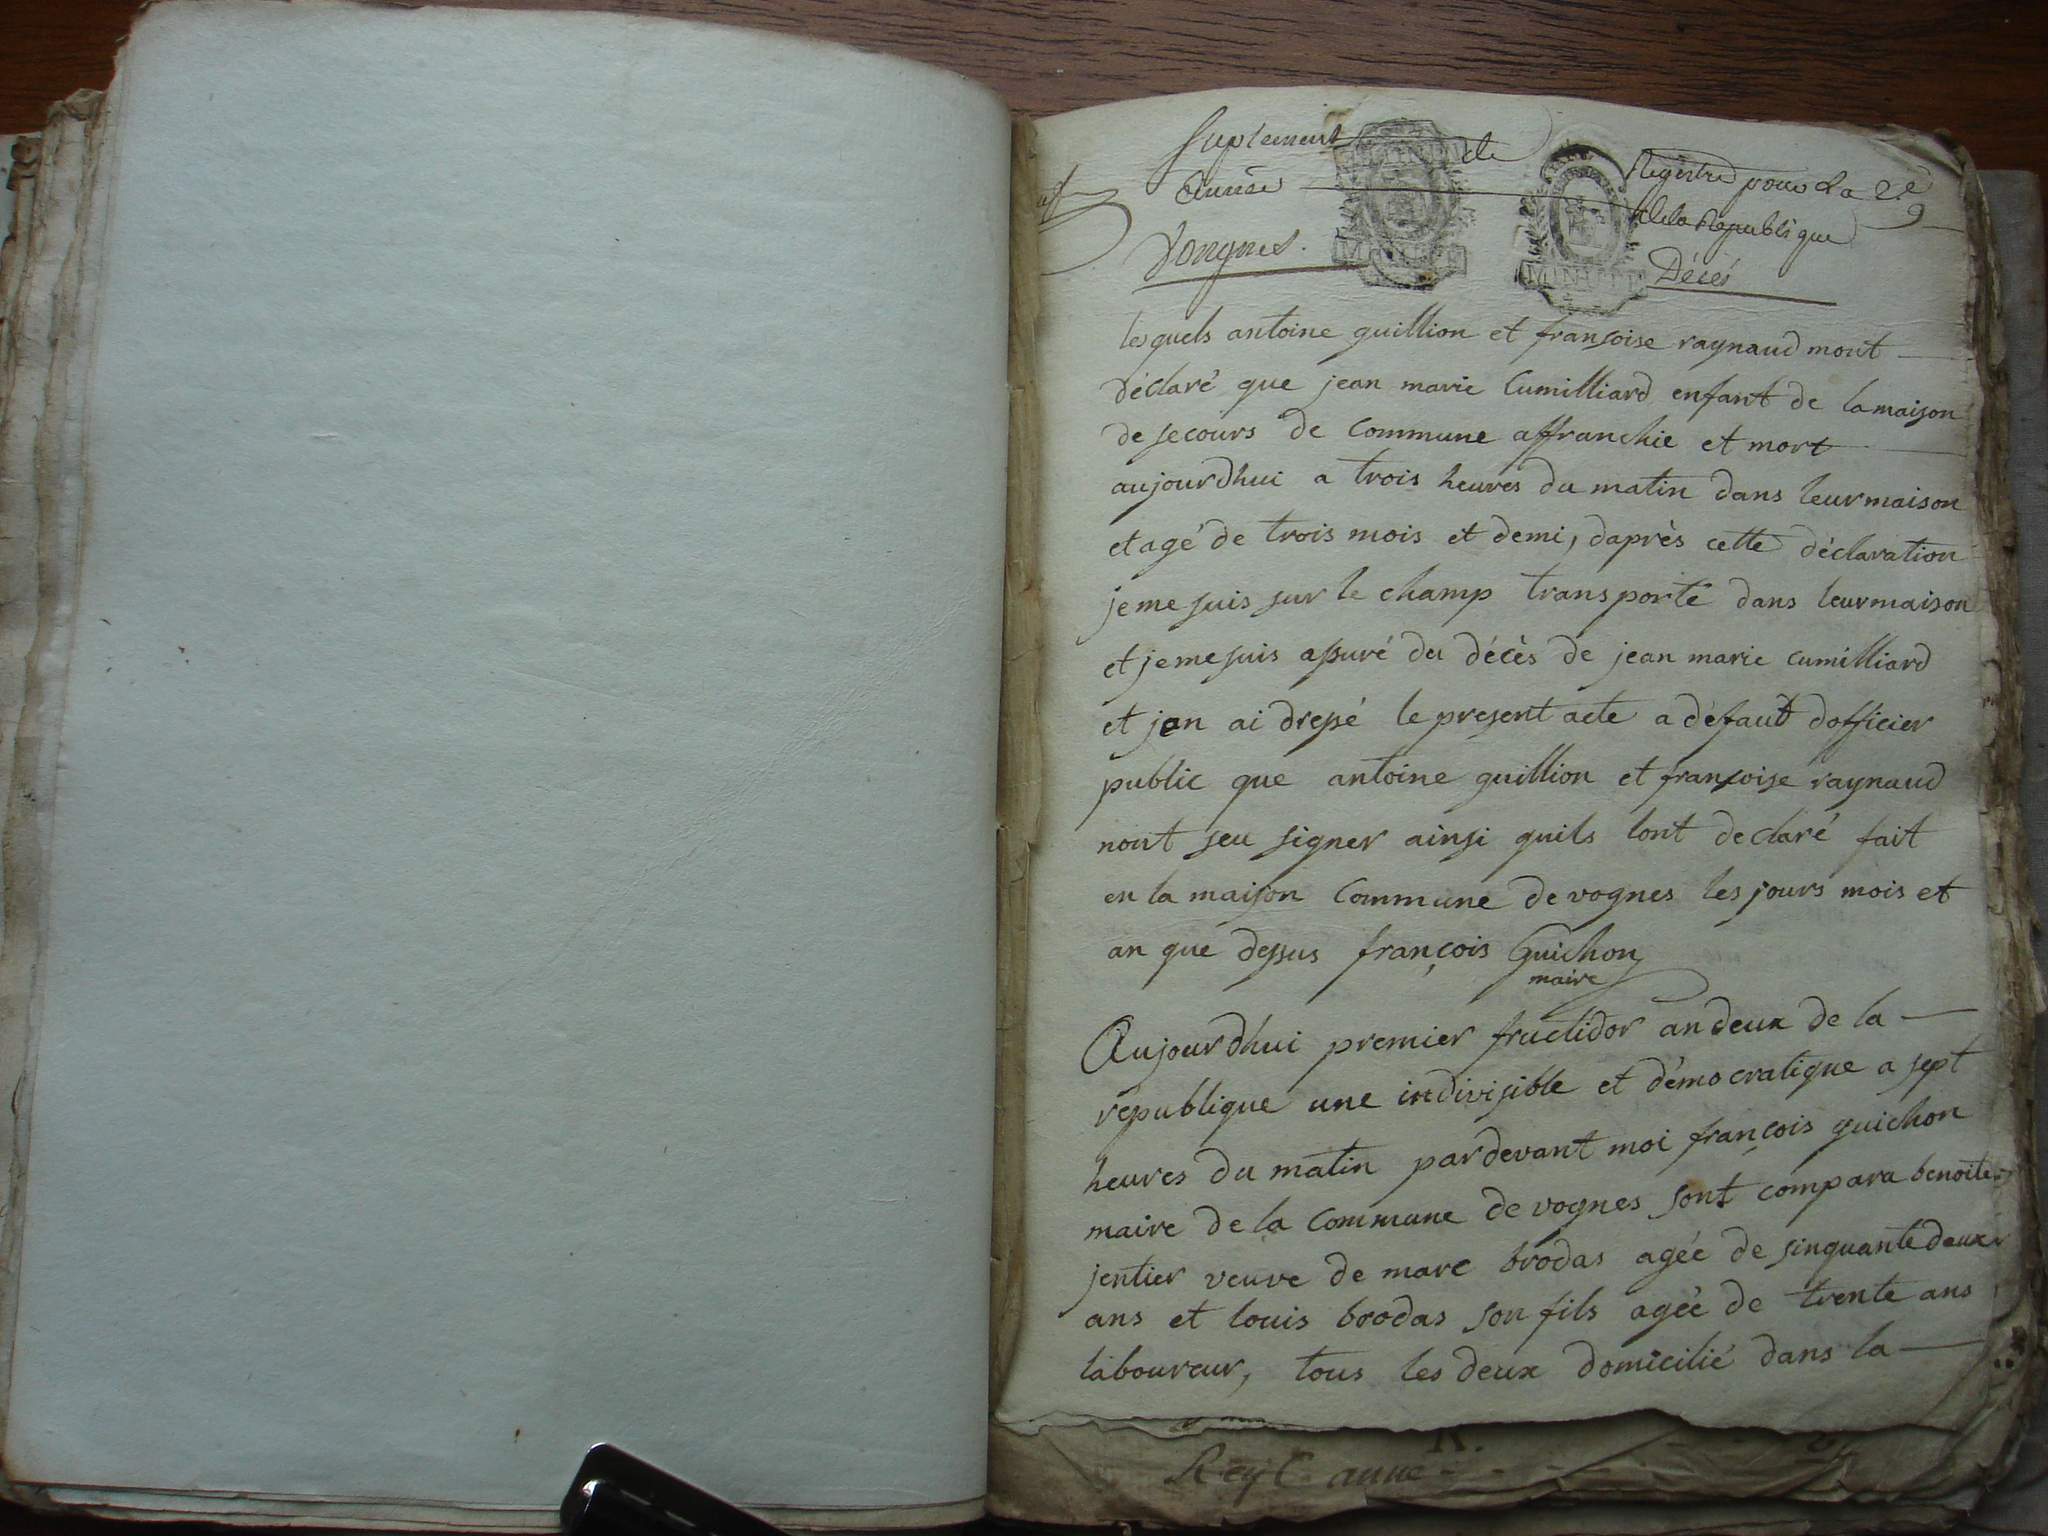 Suplement de Registre pour La 2e
Année de la Republique
Vongnes. Décés
MINUTE
lesquels antoine guillion et françoise raynaud mont
déclaré que jean marie Cumilliard enfant de la maison
de secours de Commune affranchie et mort
aujourdhui a trois heures du matin dans leur maison
et agé de trois mois et demi, daprès cette déclaration
je me suis sur le champ transporté dans leur maison
et je me suis assuré du décès de jean marie cumilliard
et jen ai dressé le present acte a défaut dofficier
public que antoine guillion et françoise raynaud
nont seu signer ainsi quils lont declaré fait
en la maison Commune de vognes les jours mois et
an que dessus françois Guichon
maire
Aujourdhui premier fructidor an deux de la
republique une indivisible et démocratique a sept
heures du matin pardevant moi françois guichon
maire de la Commune de vognes sont compara benoite
jentier veuve de marc brodas agée de sinquante deux
ans et louis brodas son fils agée de trente ans
laboureur, tous les deux domicilié dans la